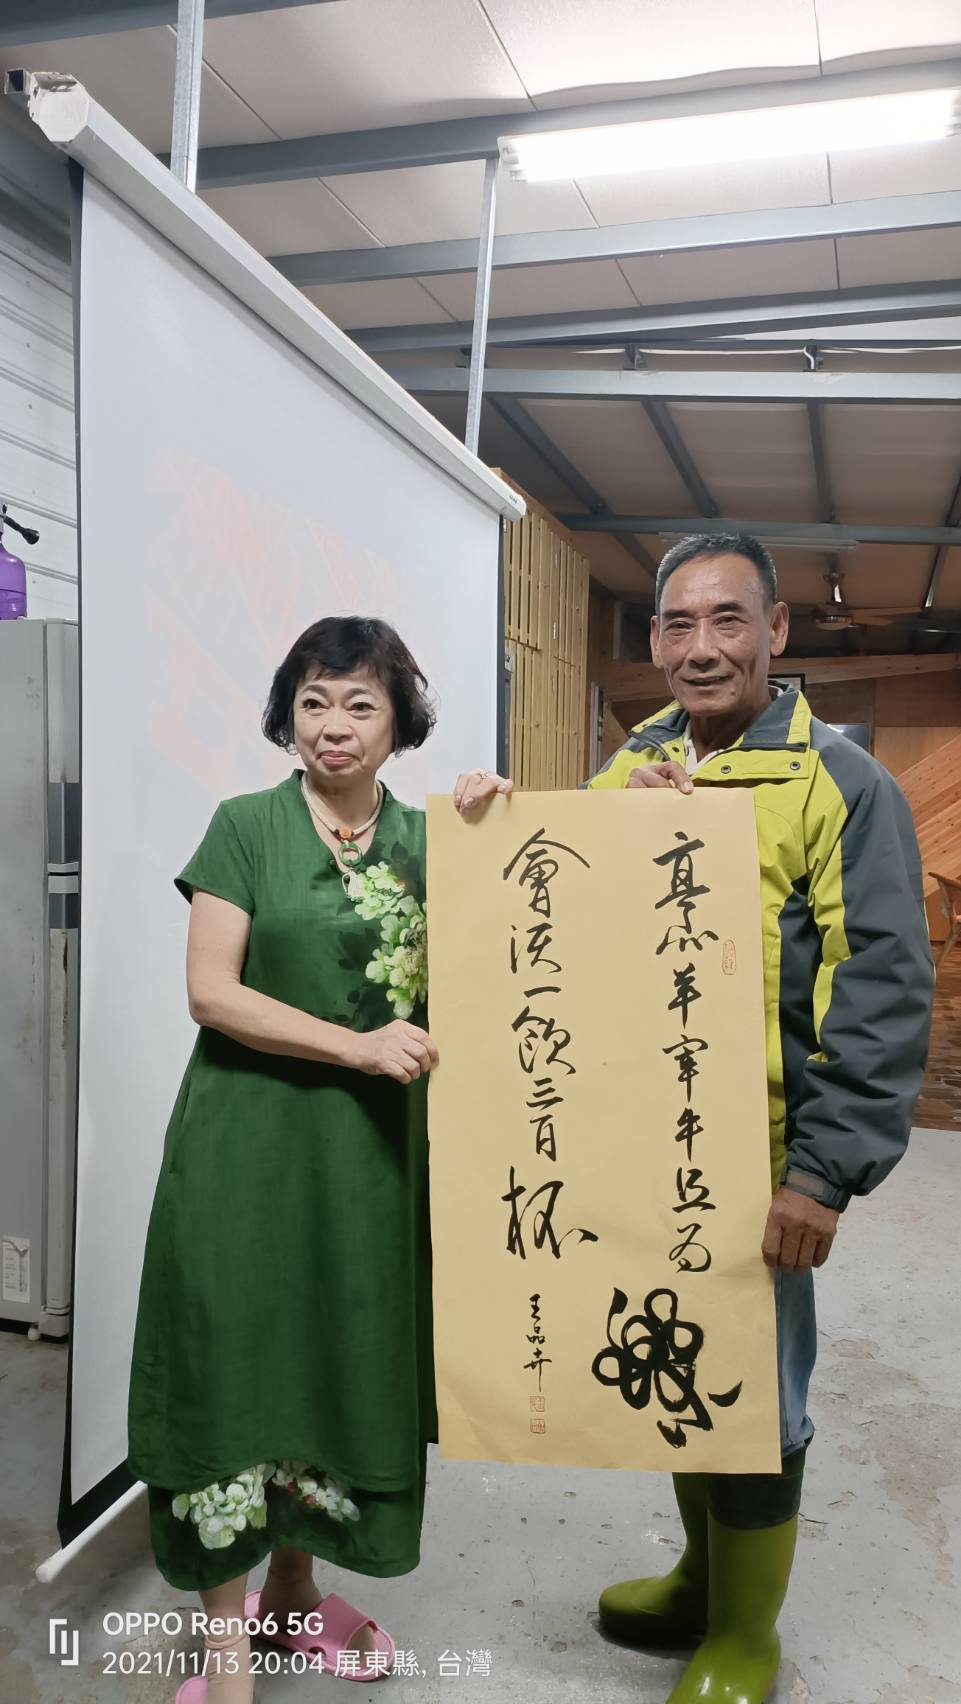 烹羊宰牛且為樂
會須一飲三百杯
王品卉
OPPO Reno6 5G
2021/11/13 20:04 屏東縣, 台灣